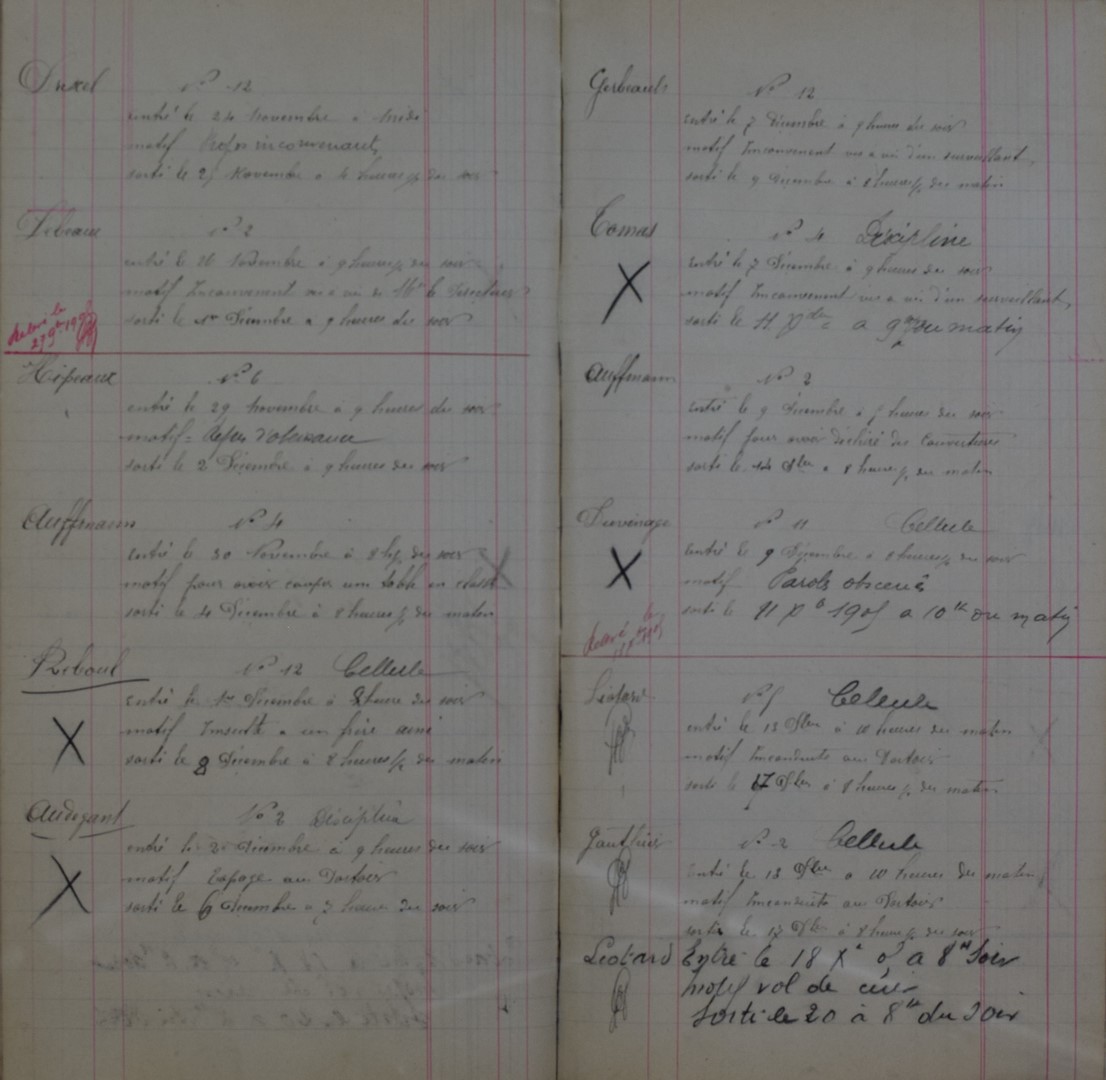 Duxel N° 12
entré le 24 Novembre à midi
motif Refus inconvenant
sorti le 27 Novembre à 4 heures ½ du soir
N° 2
entré le 26 Novembre à 9 heures ½ du soir
motif Inconvenant vis à vis de Mr le
sorti le 1er Décembre à 9 heures du soir
Relevé le
Hipeaux N° 6
entré le 29 Novembre à 9 heures du soir
motif = Refus d'obeissance
sorti le 2 Décembre à 9 heures du soir
Auffmann N° 4
entré le 30 Novembre à 8 h ½ du soir
motif pour avoir couper un table en classe
sorti le 4 Décembre à 8 heures ½ du matin
Reboul N° 12 Cellule
entré le 1er Décembre à 8 heure du soir
motif Insulte a un frère ainé
sorti le 8 Décembre à 8 heures ½ du matin
Audegant N° 2 Discipline
entré le 2 Décembre à 9 heures du soir
motif Tapage au Dortoir
sorti le 6 Décembre a 7 heure du soir
Gerbeault N° 12
entré le 7 Décembre à 9 heures du soir
motif Inconvenent vis a vis d'un surveillant
sorti le 9 Décembre à 8 heures ½ du matin
Tomas N° 4 Discipline
entré le 7 Décembre à 9 heures du soir
motif Inconvenent vis a vis d'un surveillant
sorti le 11 Xbre a 9 du matin
Auffmann N° 2
entré le 9 Décembre à 7 heures du soir
motif pour avoir déchiré des couvertures
sorti le 14 Xbre à 8 heures ½ du matin
Duvinage N° 11 Cellule
entré le 9 Décembre à 8 heures ½ du soir
motif Parols obscenes
sorti le 11 Xe 1905 a 10h du matin
Relevé le
Liotard N° 5 Cellule
entré le 13 Xbre à 10 heures du matin
motif Inconduite au Dortoir
sorti le 17 Xbre à 8 heures ½ du matin
Gauthier N° 2 Cellule
entré le 13 Xbre a 10 heures du matin
motif Inconduite au Dortoir
sortie le 17 Xbre à 8 heures ½ du soir
Liotard Entré le 18 Xe à 8h Soir
motif vol de cuir
Sorti le 20 à 8h du Soir